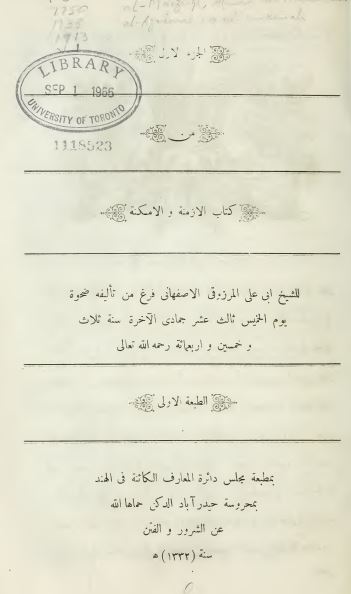 1913
الجزء الاول
LIBRARY
SEP 1 1966
UNIVERSITY OF TORONTO
1118523
من
كتاب الازمنة و الامكنة
للشيخ ابى على المرزوقى الاصفهانى فرغ من تأليفه ضحوة
يوم الخميس ثالث عشر جمادى الآخرة سنة ثلاث
و خمسين و اربعمائة رحمه الله تعالى
الطبعة الاولى
بمطبعة مجلس دائرة المعارف الكائنة فى الهند
بمحروسة حيدرآباد الدكن حماها الله
عن الشرور و الفتن
سنة (١٣٣٢) ه